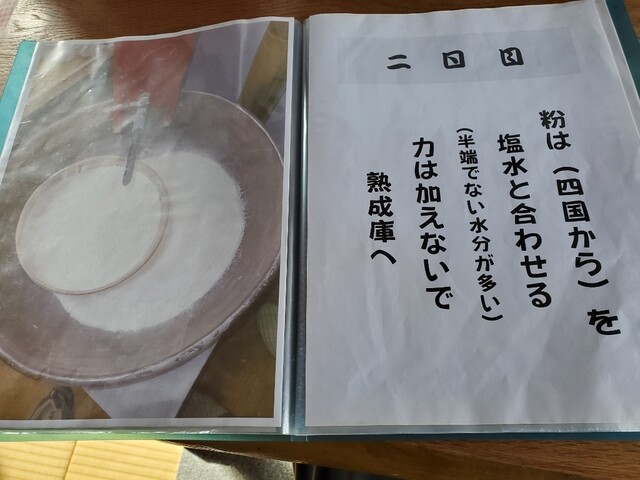 二日目
粉は(四国から)を
塩水と合わせる
(半端でない水分が多い)
力は加えないで
熟成庫へ